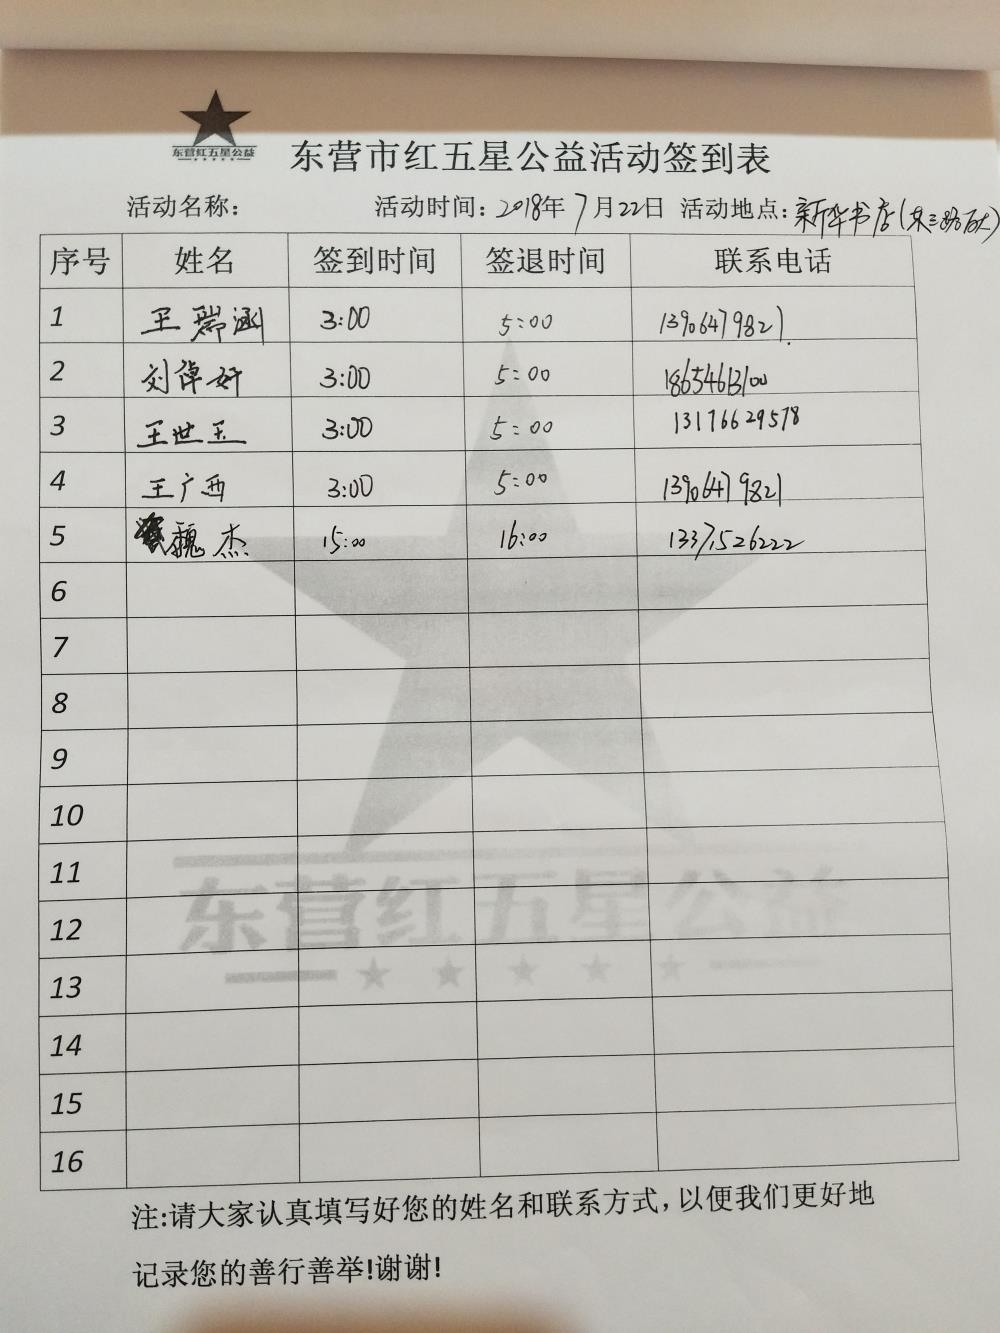 东营红五星公益
东营市红五星公益活动签到表
活动名称： 活动时间：2018年7月22日 活动地点：新华书店(东三路百大)
序号 姓名 签到时间 签退时间 联系电话
1 王瑞涵 3:00 5:00 13906479821
2 刘倬妤 3:00 5:00 18654613100
3 王世玉 3:00 5:00 13176629578
4 王广西 3:00 5:00 13906479821
5 魏杰 15:00 16:00 13371526222
6
7
8
9
10
11
12
13
14
15
16
东营红五星公益
注:请大家认真填写好您的姓名和联系方式，以便我们更好地
记录您的善行善举!谢谢!